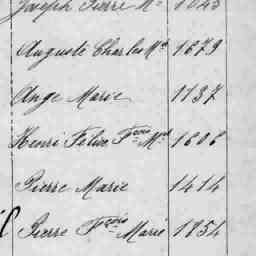 Joseph Pierre Me 1043
Auguste Charles Md 1679
Ange Marie 1137
Henri Félix Fçois Md 1606
Pierre Marie 1414
Pierre Fçois Marie 1854